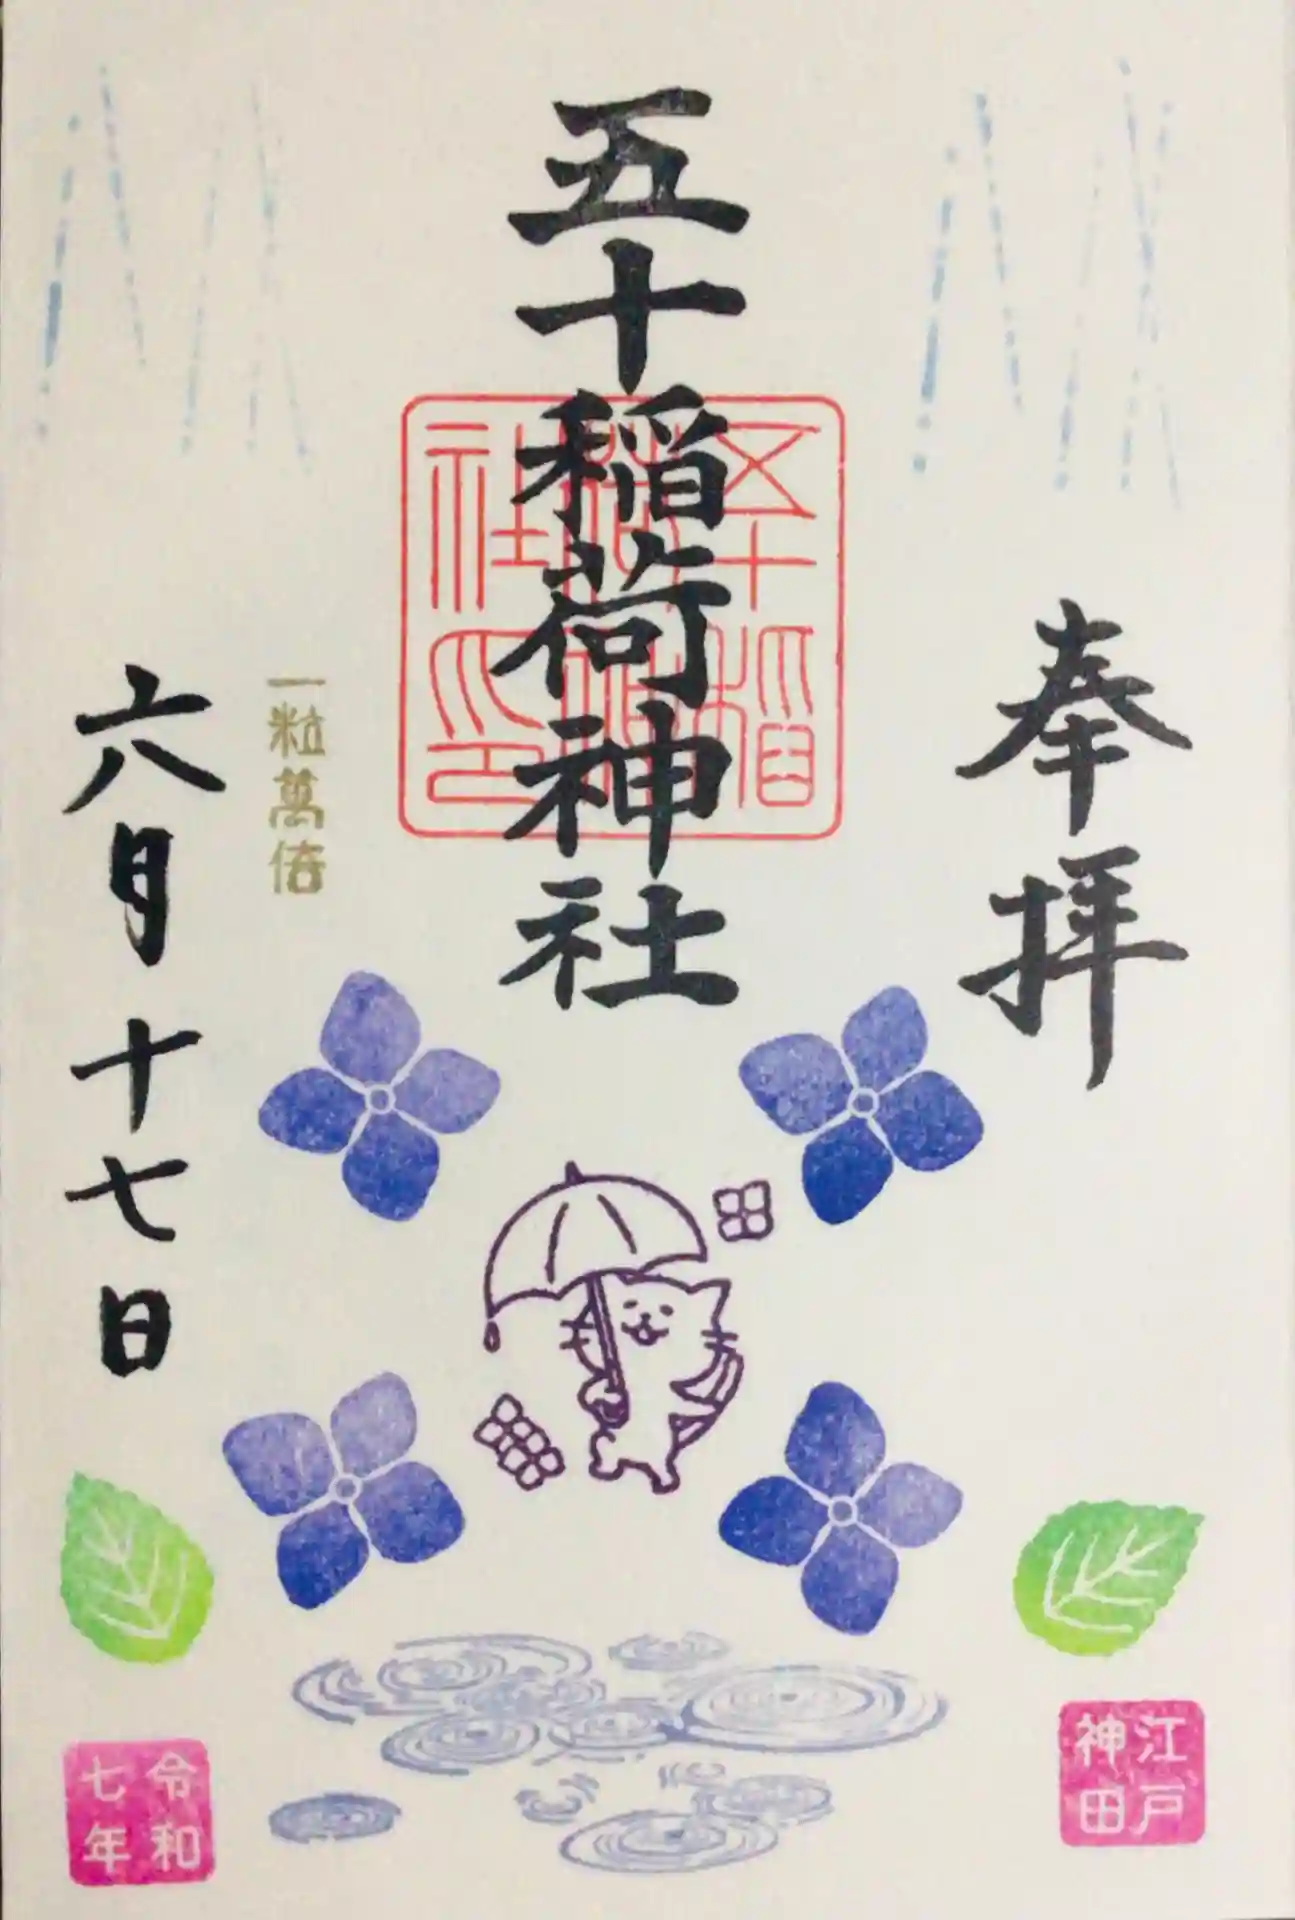 奉拝
五十稲荷神社
五十稲荷神社印
一粒萬倍
六月十七日
江戸神田
令和七年